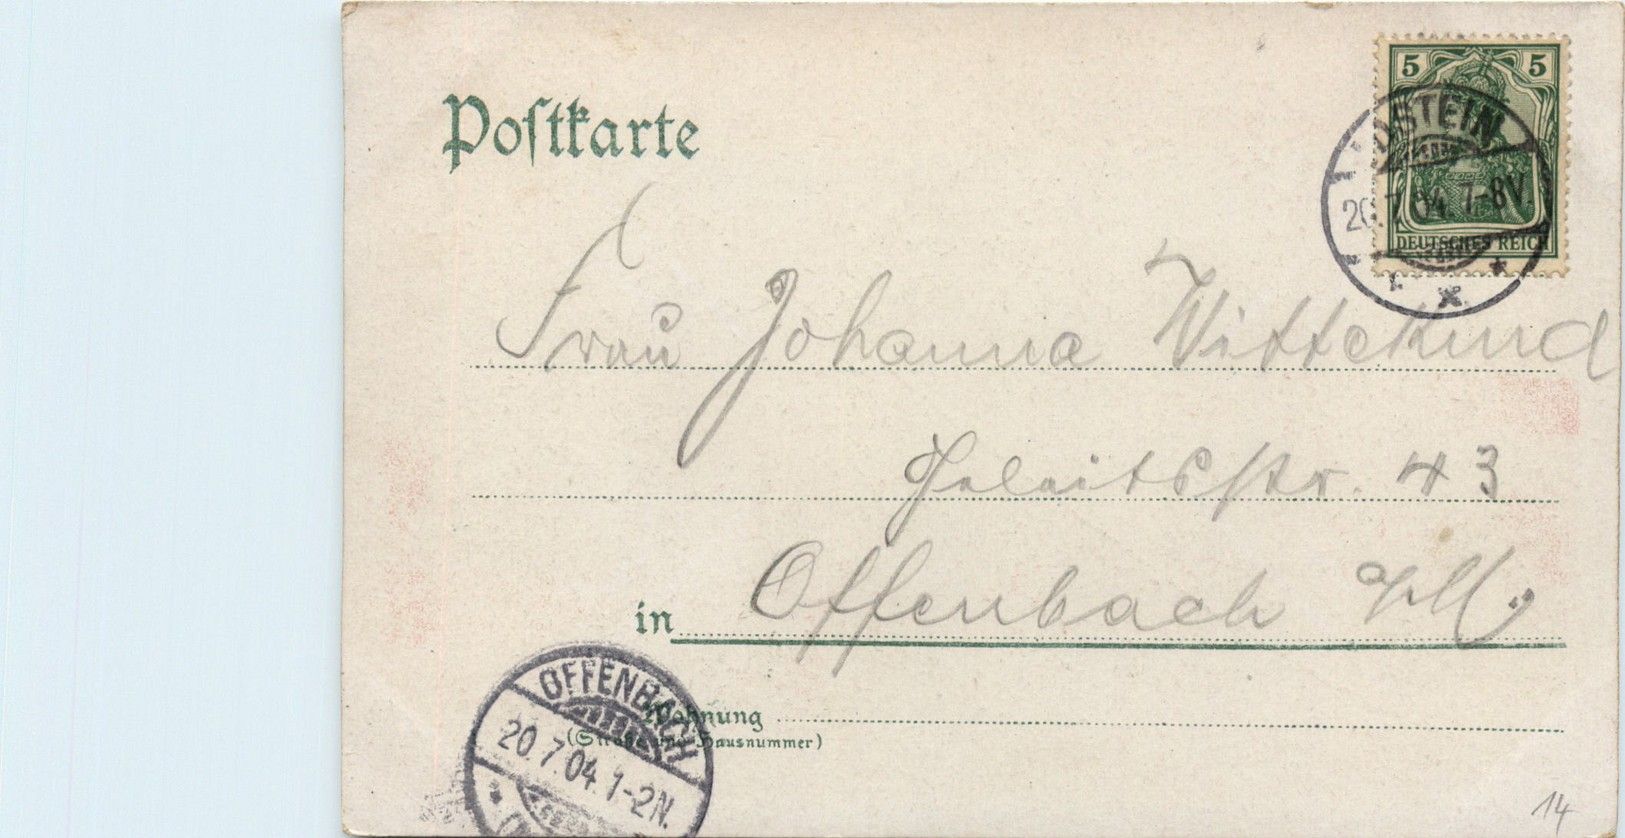 Postkarte
5 5
IDSTEIN
20.7.04. 7-8V.
DEUTSCHES REICH
Frau Johanna Wittekind
Geleitsstr. 43
in Offenbach a/M.
Wohnung
(Straße und Hausnummer)
OFFENBACH
20.7.04. 1-2N.
14